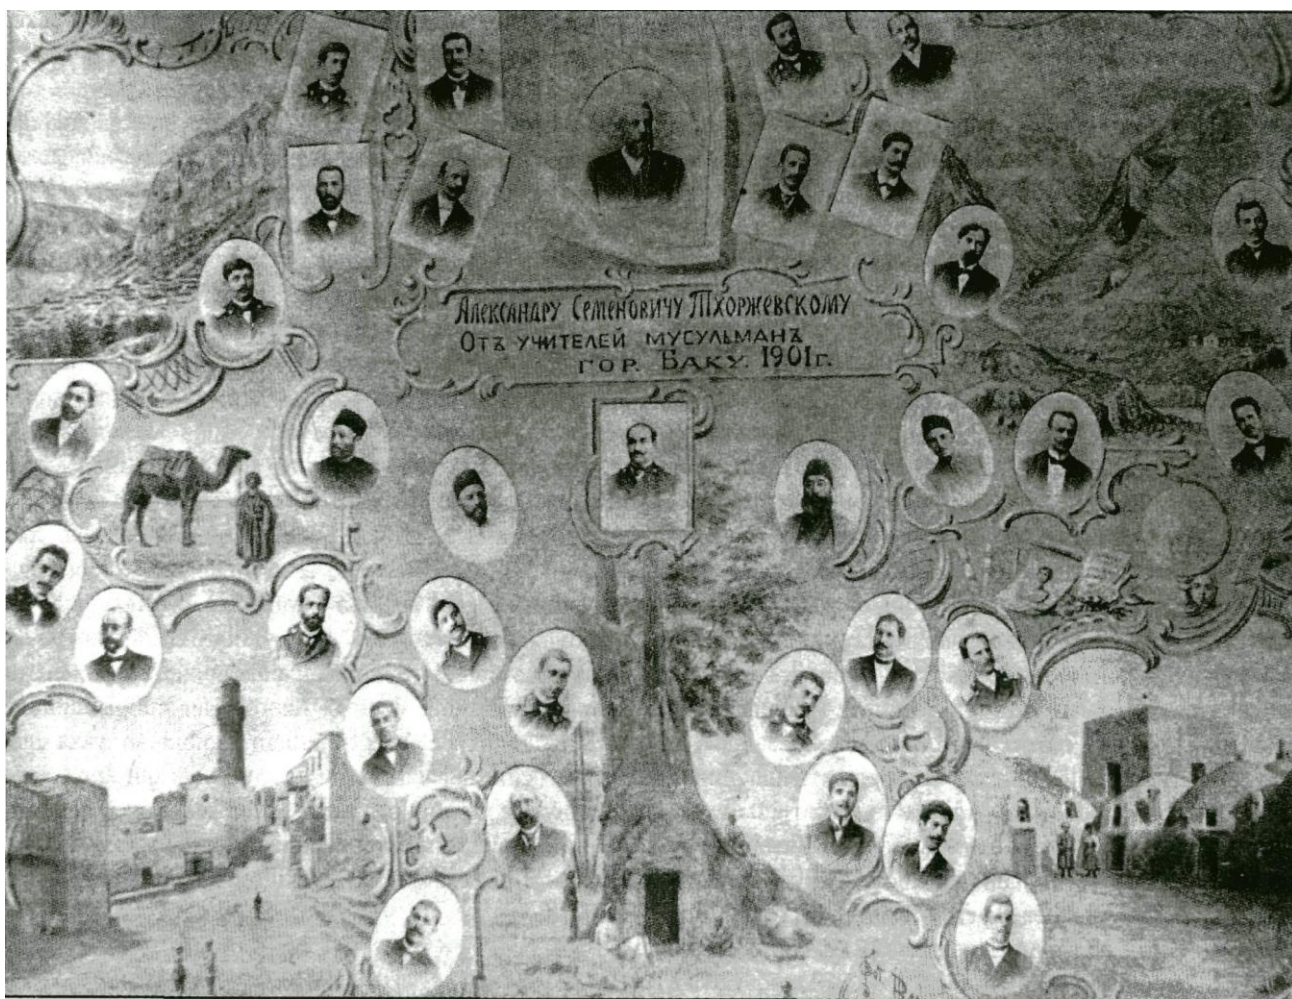 Александру Семеновичу Тхоржевскому
Отъ учителей мусульманъ
гор. Баку. 1901 г.